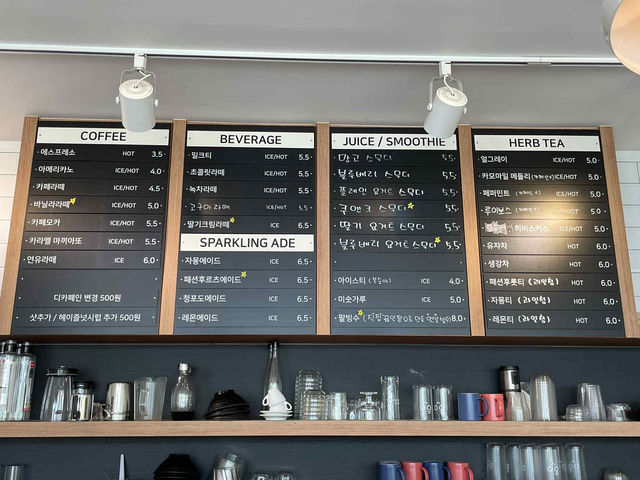 COFFEE
· 에스프레소 HOT 3.5 ·
· 아메리카노 ICE/HOT 4.0 ·
· 카페라떼 ICE/HOT 4.5 ·
· 바닐라라떼 ICE/HOT 5.0 ·
· 카페모카 ICE/HOT 5.5 ·
· 카라멜 마끼아또 ICE/HOT 5.5 ·
· 연유라떼 ICE 6.0 ·
디카페인 변경 500원
샷추가 / 헤이즐넛시럽 추가 500원
BEVERAGE
· 밀크티 ICE/HOT 5.5 ·
· 초콜릿라떼 ICE/HOT 5.5 ·
· 녹차라떼 ICE/HOT 5.5 ·
· 고구마라떼 ICE/HOT 5.5 ·
· 딸기크림라떼 ICE 5.5 ·
SPARKLING ADE
· 자몽에이드 ICE 6.5 ·
· 패션후르츠에이드 ICE 6.5 ·
· 청포도에이드 ICE 6.5 ·
· 레몬에이드 ICE 6.5 ·
JUICE / SMOOTHIE
망고 스무디 5.5
블루베리 스무디 5.5
플레인 요거트 스무디 5.5
쿠앤크 스무디 5.5
딸기 요거트 스무디 5.5
블루베리 요거트 스무디 5.5
· 아이스티 (복숭아) ICE 4.0 ·
· 미숫가루 ICE 5.0 ·
· 팥빙수 8.0 ·
HERB TEA
· 얼그레이 ICE/HOT 5.0 ·
· 카모마일 메들리 (카페인x) ICE/HOT 5.0 ·
· 페퍼민트 (카페인x) ICE/HOT 5.0 ·
· 루이보스 (카페인x) ICE/HOT 5.0 ·
히비스커스 ICE/HOT 5.0 ·
· 유자차 HOT 6.0 ·
· 생강차 HOT 6.0 ·
· 패션후룻티 (래앳힐) HOT 6.0 ·
· 자몽티 HOT 6.0 ·
· 레몬티 HOT 6.0 ·